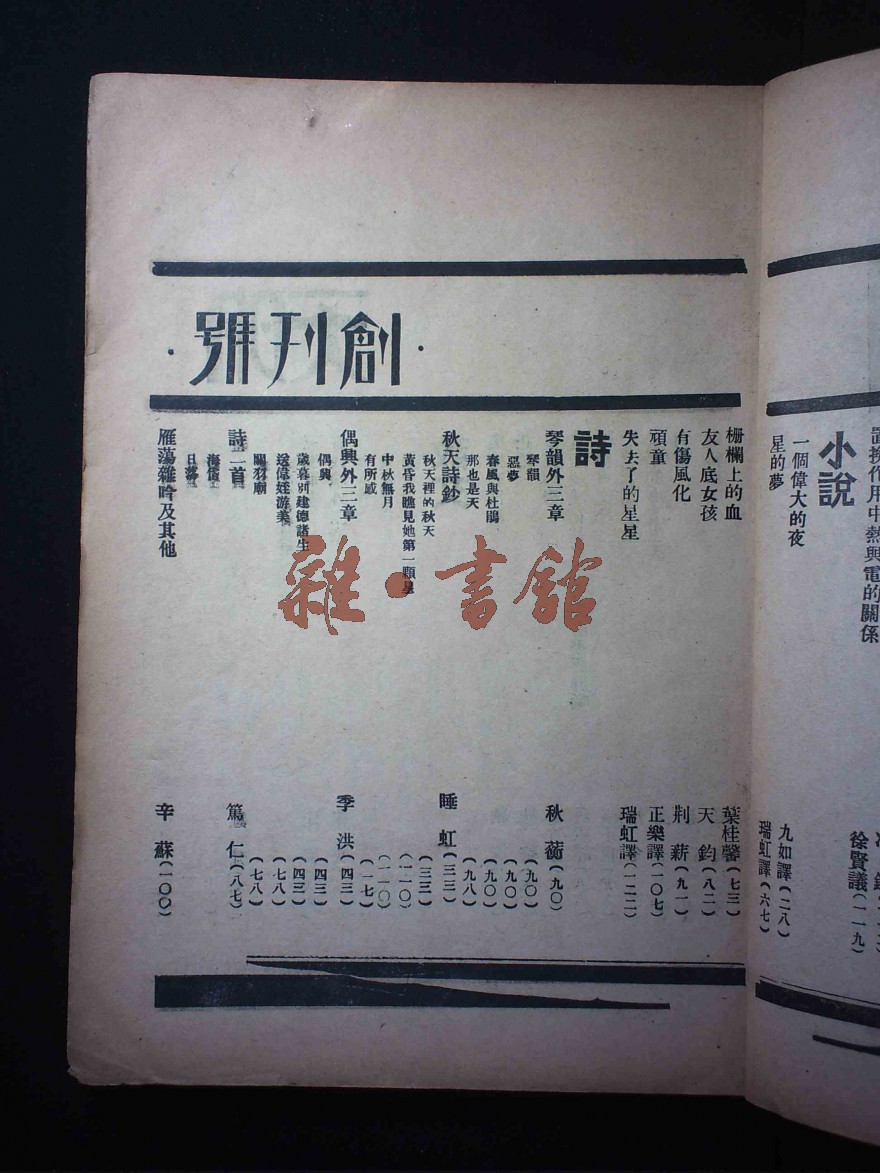 置換作用中熱與電的關係
徐賢議(一一九)
小說
一個偉大的夜 九如譯(二八)
星的夢 瑞虹譯(六七)
·創刊號·
柵欄上的血 葉桂馨(七三)
友人底女孩 天鈞(八二)
有傷風化 荆薪(九一)
頑童 正樂譯(一〇七)
失去了的星星 瑞虹譯(一二二)
詩
琴韻外三章 秋蘅(九〇)
琴韻(九〇)
惡夢(九〇)
春風與杜鵑(九〇)
那也是天(九八)
秋天詩鈔 睡虹(三三)
秋天裡的秋天(三三)
黃昏我瞧見她第一顆星(一一〇)
中秋無月(一一〇)
有所感(一七)
偶興外三章 季洪(四三)
偶興(四三)
歲暮別建德諸生(四三)
送偉姪游美(七八)
關羽廟(七八)
詩二首 篤仁(八七)
日落
雁蕩雜吟及其他 辛蘇(一〇〇)
雜·書館